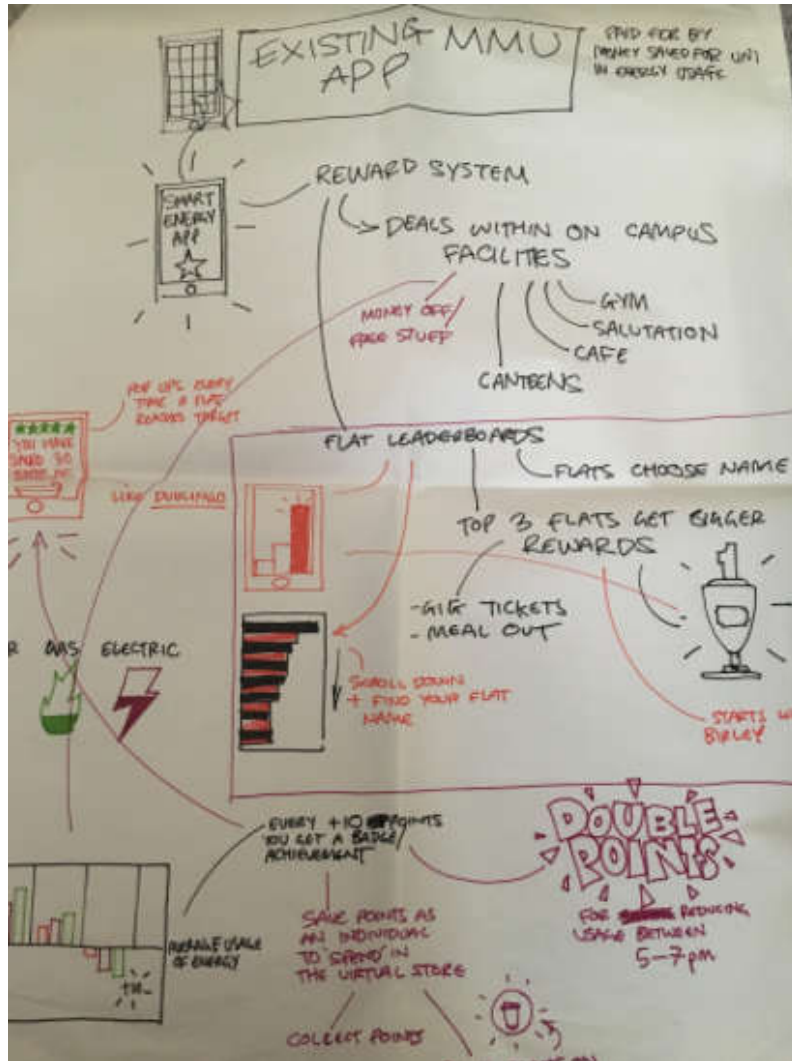 EXISTING MMU
APP
PAID FOR BY
MONEY SAVED FOR UNI
IN ENERGY USAGE
SMART
ENERGY
APP
REWARD SYSTEM
DEALS WITHIN ON CAMPUS
FACILITES
MONEY OFF/
FREE STUFF
GYM
SALUTATION
CAFE
CANTEENS
POP UPS EVERY
TIME A FLAT
REACHES TARGET
YOU HAVE
SAVED 30
FLAT LEADERBOARDS
FLATS CHOOSE NAME
LIKE DUOLINGO
TOP 3 FLATS GET BIGGER
REWARDS
- GIG TICKETS
- MEAL OUT
1
R GAS ELECTRIC
SCROLL DOWN
+ FIND YOUR FLAT
NAME
STARTS W
BIRLEY
EVERY +10 POINTS
YOU GET A BADGE/
ACHIEVEMENT
DOUBLE
POINTS
FOR REDUCING
USAGE BETWEEN
5-7pm
AVERAGE USAGE
OF ENERGY
SAVE POINTS AS
AN INDIVIDUAL
TO 'SPEND' IN
THE VIRTUAL STORE
COLLECT POINTS